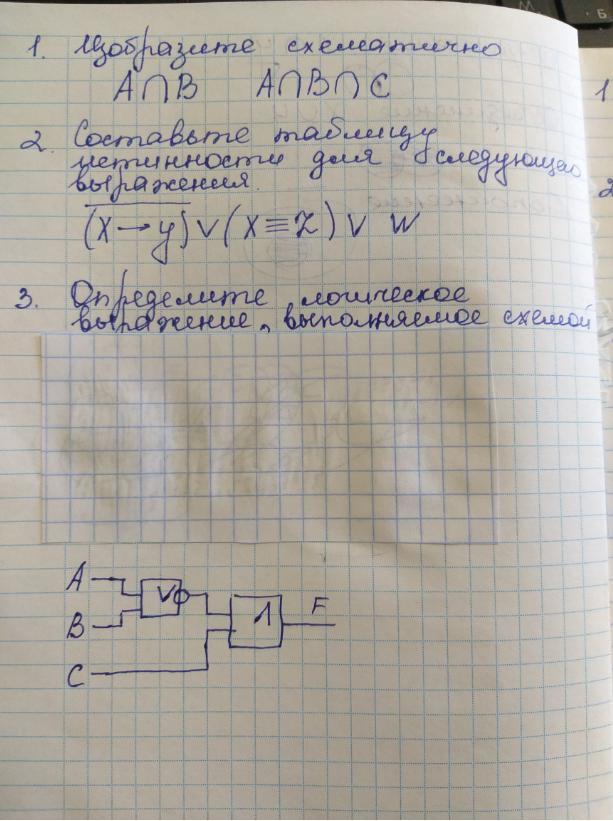 1. Изобразите схематично
A∩B A∩B∩C
2. Составьте таблицу
истинности для следующего
выражения.
(X→y)∨(X≡Z)∨ W
3. Определите логическое
выражение, выполняемое схемой
A
B
C
V
Λ
F
1
2